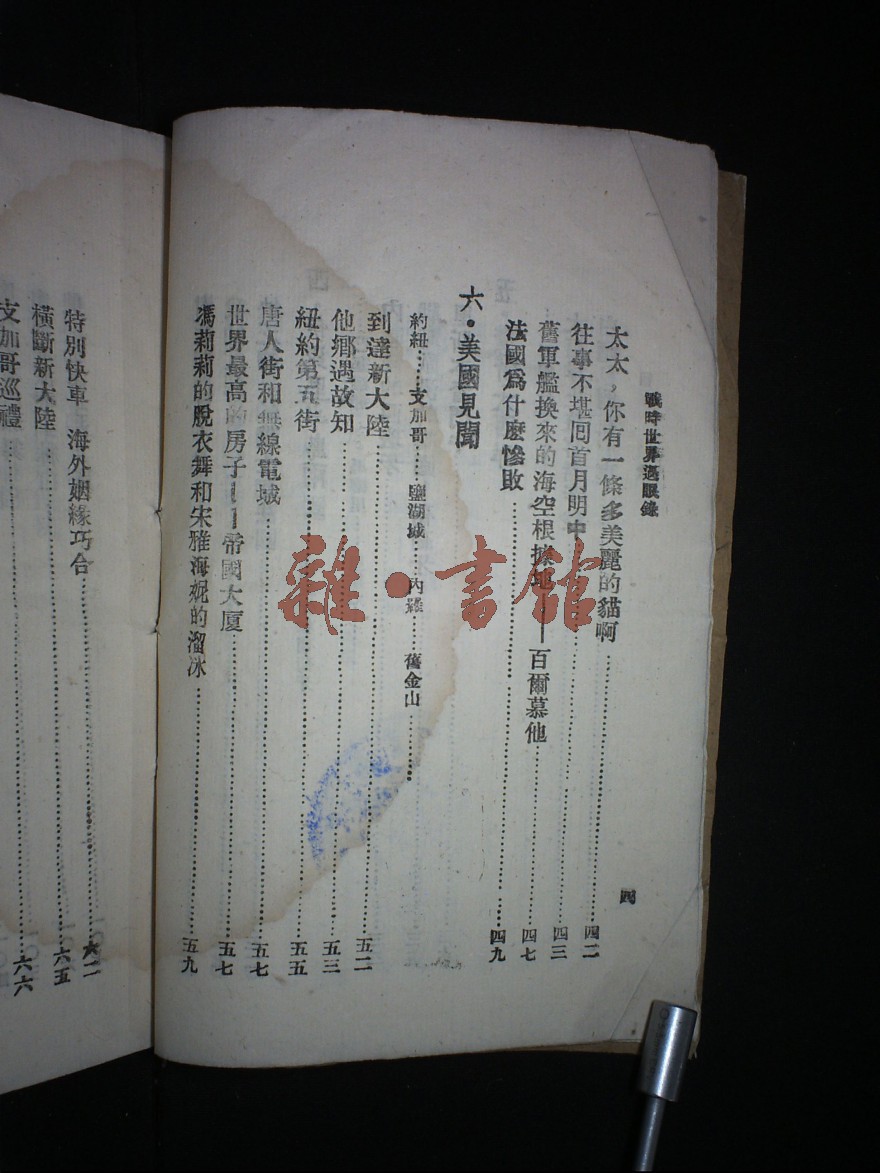 戰時世界過眼錄
四
太太，你有一條多美麗的貓啊……四二
往事不堪囘首月明中……四三
舊軍艦換來的海空根據地——百爾慕他……四七
法國爲什麽慘敗……四九
六·美國見聞
約紐……支加哥……鹽湖城……內羅……舊金山……
到達新大陸……五二
他鄉遇故知……五三
紐約第五街……五五
唐人街和無線電城……五七
世界最高的房子——帝國大厦……五七
馮莉莉的脫衣舞和宋雅海妮的溜冰……五九
特別快車 海外姻緣巧合……六二
橫斷新大陸……六五
支加哥巡禮……六六
雜·書館